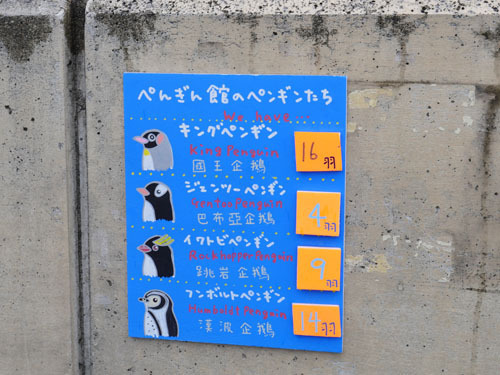 ぺんぎん館のペンギンたち
We have…
キングペンギン
King Penguin
國王企鵝
16羽
ジェンツーペンギン
Gentoo Penguin
巴布亞企鵝
4羽
イワトビペンギン
Rockhopper Penguin
跳岩企鵝
9羽
フンボルトペンギン
Humboldt Penguin
漢波企鵝
14羽